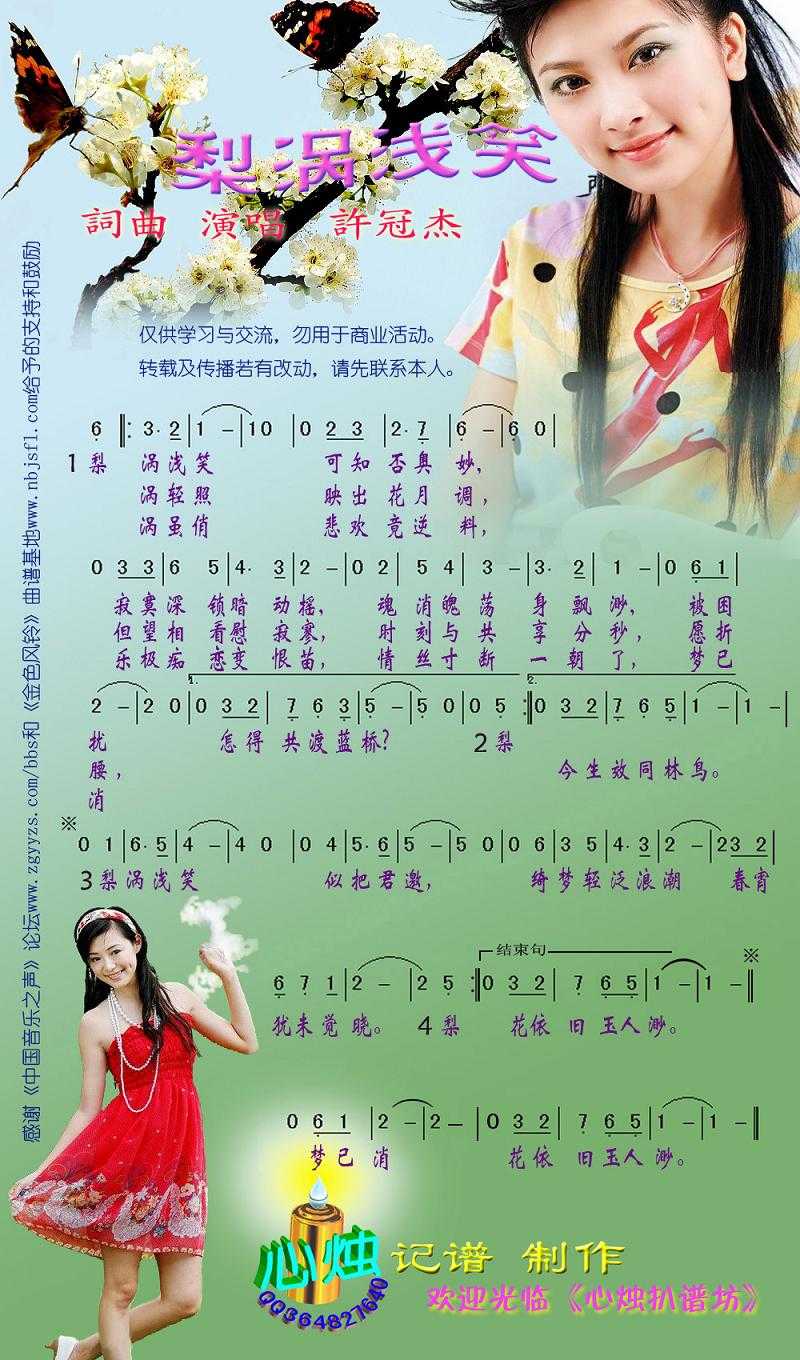 梨涡浅笑
詞曲 演唱 許冠杰
仅供学习与交流，勿用于商业活动。
转载及传播若有改动，请先联系本人。
感谢《中国音乐之声》论坛www.zgyyzs.com/bbs和《金色风铃》曲谱基地www.nbjsfl.com给予的支持和鼓励
6 ‖: 3· 2 | 1 - | 1 0 | 0 2 3 | 2· 7 | 6 - | 6 0 |
1梨 涡浅笑 可知 否奥 妙，
涡轻照 映出 花月 调，
涡虽俏 悲欢 竟逆 料，
0 3 3 | 6 5 | 4· 3 | 2 - | 0 2 | 5 4 | 3 - | 3· 2 | 1 - | 0 6 1 |
寂寞深 锁暗 动摇， 魂 消魄 荡 身 飘渺， 被困
但望相 看慰 寂寥， 时 刻与 共 享 分秒， 愿折
乐极痴 恋变 恨苗， 情 丝寸 断 一 朝了， 梦已
1. 2.
2 - | 2 0 | 0 3 2 | 7 6 3 | 5 - | 5 0 | 0 5 :‖ 0 3 2 | 7 6 5 | 1 - | 1 - |
扰 怎得 共渡蓝桥? 2梨
腰， 今生效同林鸟。
消
※
0 1 | 6· 5 | 4 - | 4 0 | 0 4 | 5· 6 | 5 - | 5 0 | 0 6 | 3 5 | 4· 3 | 2 - | 2 3 2 |
3梨涡浅笑 似把君邀， 绮梦轻泛浪潮 春宵
结束句 ※
6 7 1 | 2 - | 2 5 :‖ 0 3 2 | 7 6 5 | 1 - | 1 - ‖
犹未觉晓。 4梨 花依 旧玉人渺。
0 6 1 | 2 - | 2 - | 0 3 2 | 7 6 5 | 1 - | 1 - ‖
梦已消 花依 旧玉人渺。
心烛 记谱 制作
QQ364827640
欢迎光临《心烛扒谱坊》